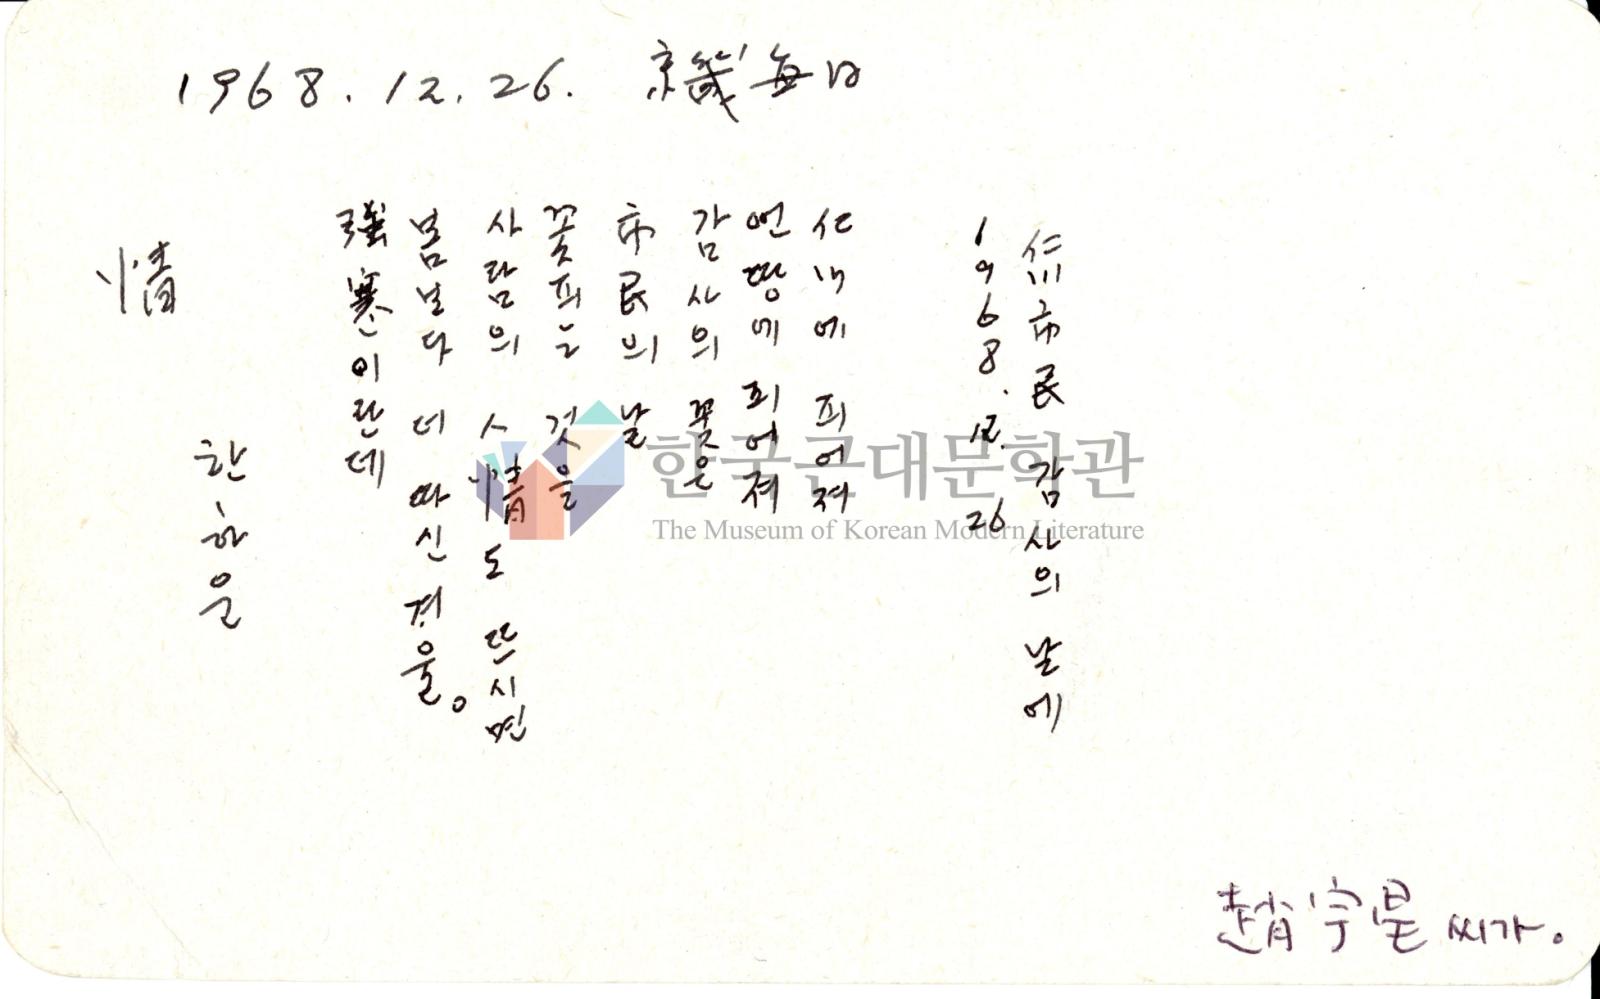 1968.12.26. 京畿每日
情
한하운
强寒이란데
봄보다 더 따신 겨울。
사람의 人情도 뜨시면
꽃피는 것을
市民의 날
감사의 꽃은
언땅에 피어져
仁川에 피어져
1968.12.26
仁川市民 감사의 날에
씨가。
한국근대문학관
The Museum of Korean Modern Literature